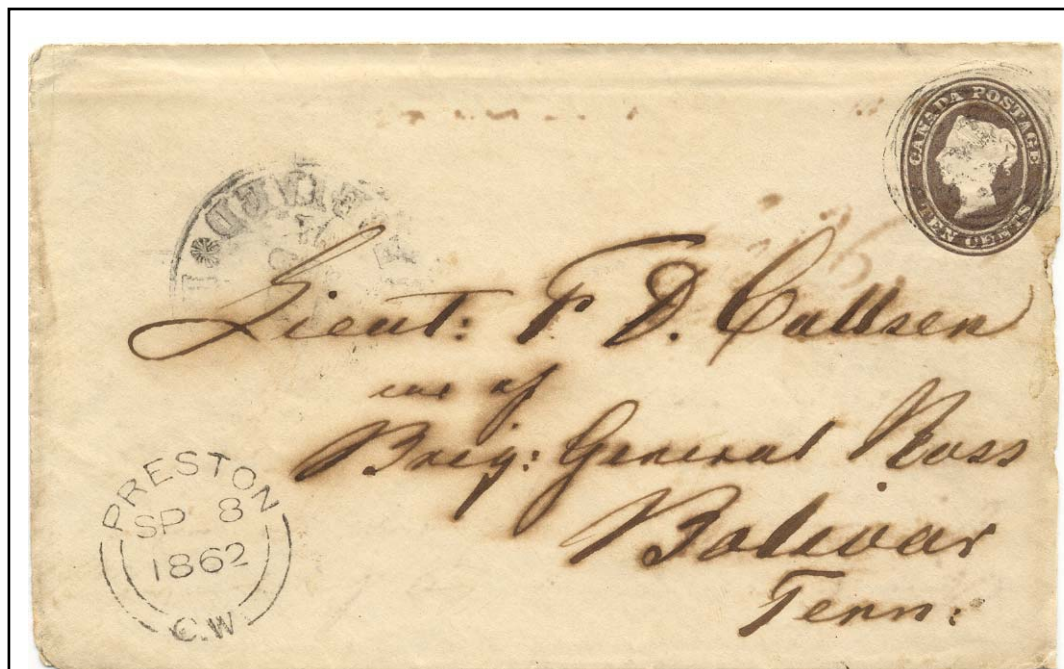 CANADA POSTAGE
TEN CENTS
Lieut: F. D. Callsen
care of
Brig: General Ross
Bolivar
Tenn:
PRESTON
SP 8
1862
C.W.